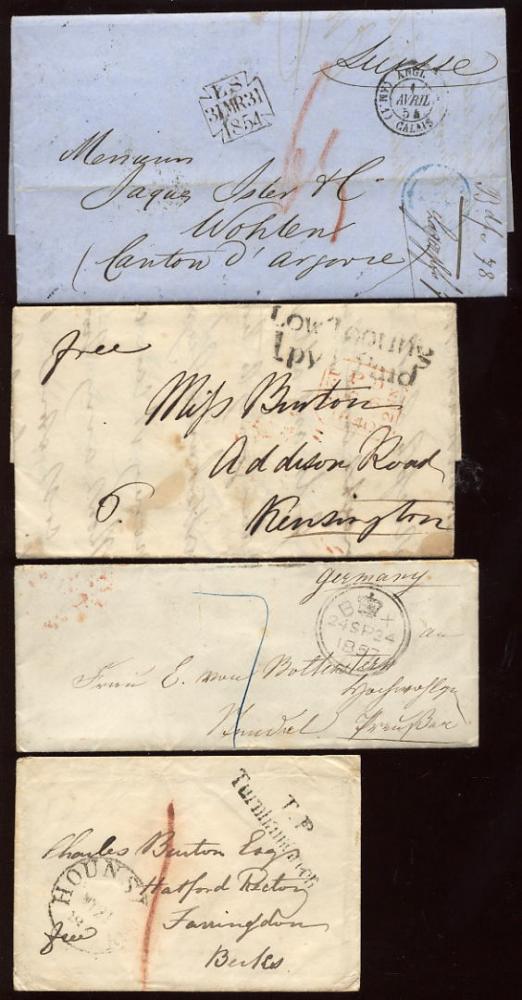 Suisse
L.S
31MR31
1854
ANGL.
1
AVRIL
54
CALAIS
Messieurs
Jaques Isler & Co
Wohlen
(Canton d'Argovie
free
Low Tooting
1py Paid
Miss Burton
Addison Road
Kensington
6
Germany
B X
24SP24
1857
7
an
Frau E. von
Hochwohlgn
Preußen
T.P
Turnham Green
Charles Burton Esqr
Hatford Rectory
Farringdon
Berks
HOUNSL
free